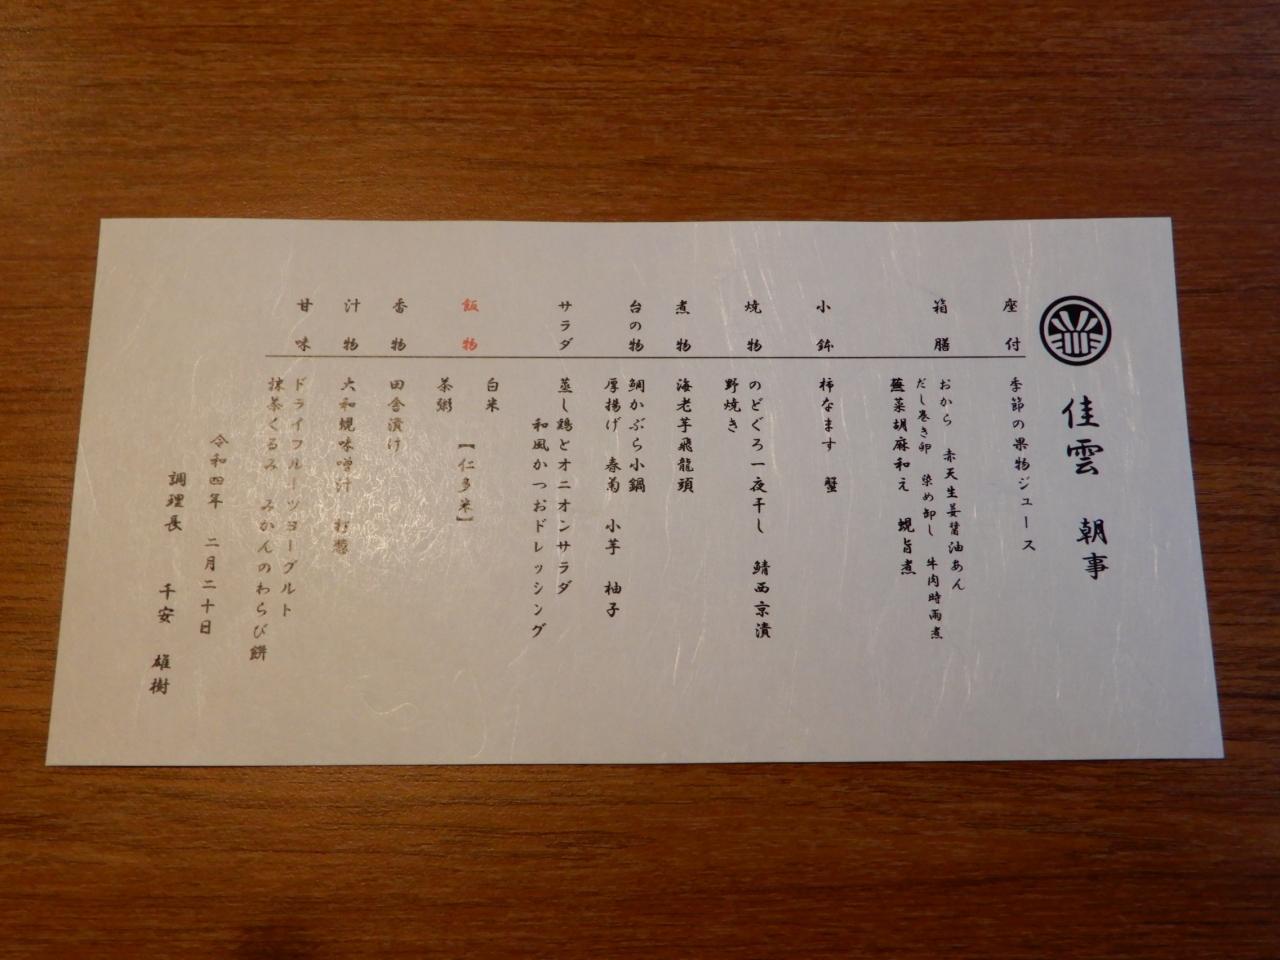 佳雲 朝事
座付
季節の果物ジュース
箱膳
おから 赤天生姜醤油あん
だし巻き卵 染め卸し 牛肉時雨煮
蕪菜胡麻和え 蜆旨煮
小鉢
柿なます 蟹
焼物
のどぐろ一夜干し 鯖西京漬
野焼き
煮物
海老芋飛龍頭
台の物
鯛かぶら小鍋
厚揚げ 春菊 小芋 柚子
サラダ
蒸し鶏とオニオンサラダ
和風かつおドレッシング
飯物
白米
【仁多米】
茶粥
香物
田舎漬け
汁物
大和蜆味噌汁 打葱
甘味
ドライフルーツヨーグルト
抹茶くるみ みかんのわらび餅
令和四年 二月二十日
調理長 千安 雄樹